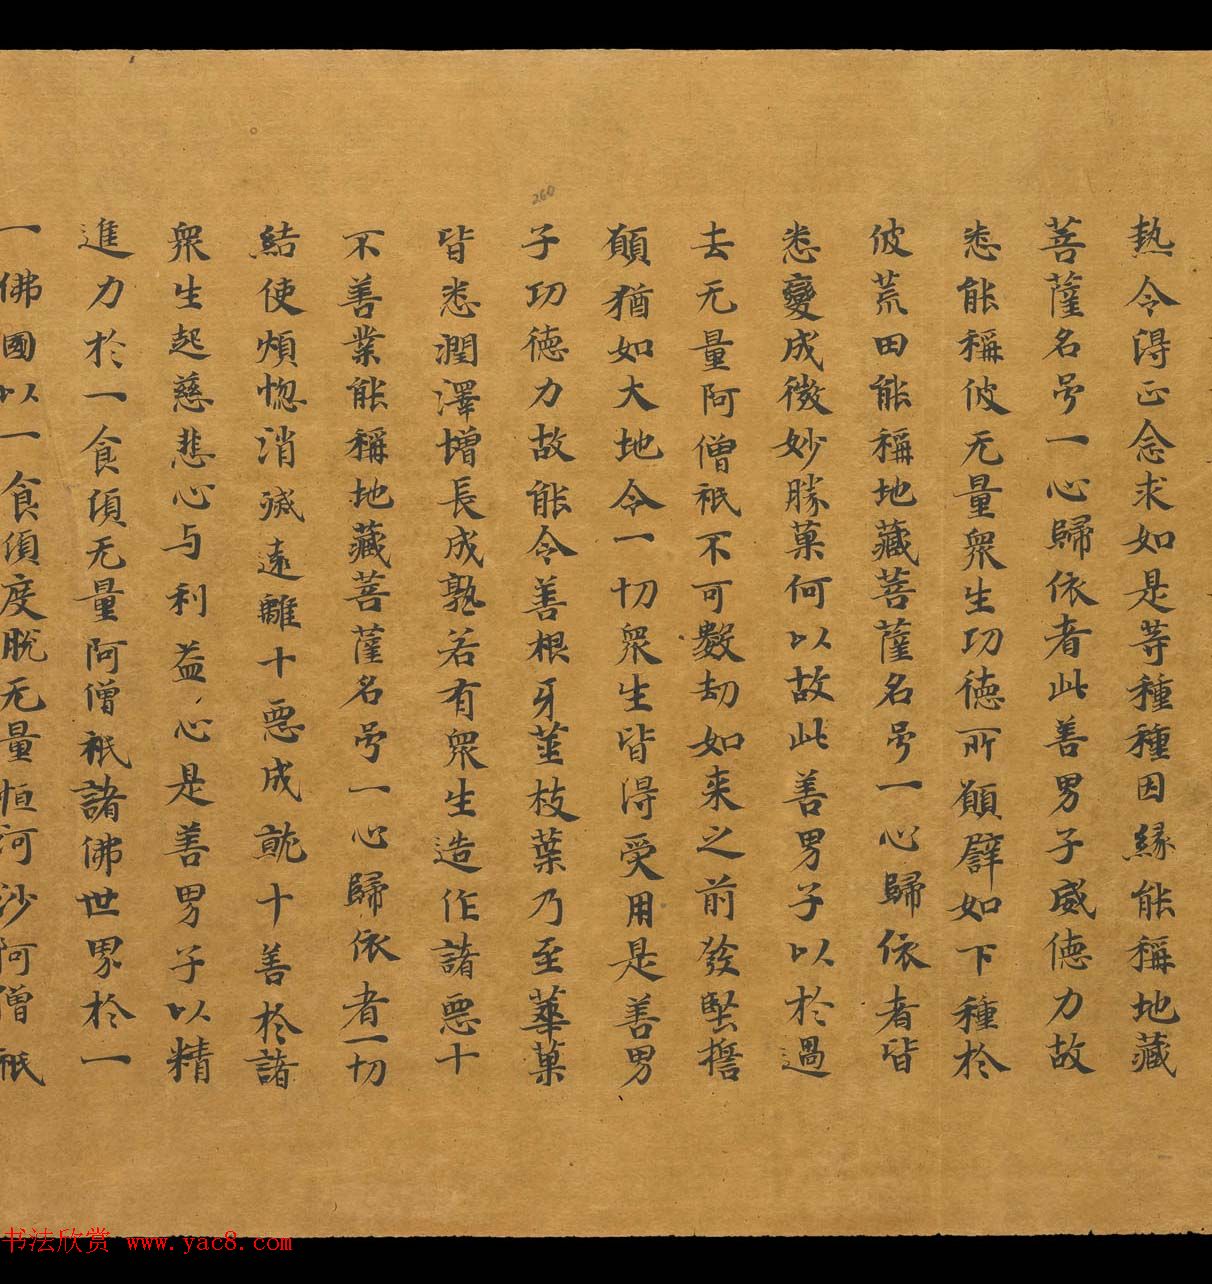 熱令得正念求如是等種種因緣能稱地藏
菩薩名号一心歸依者此善男子威德力故
悉能稱彼无量衆生功德所願譬如下種於
彼荒田能稱地藏菩薩名号一心歸依者皆
悉變成微妙勝菓何以故此善男子以於過
去无量阿僧祇不可數劫如来之前發堅擔
願猶如大地令一切衆生皆得受用是善男
子功德力故能令善根牙莖枝葉乃至華菓
皆悉潤澤增長成熟若有衆生造作諸惡十
不善業能稱地藏菩薩名号一心歸依者一切
結使煩惱消滅遠離十惡成就十善於諸
衆生起慈悲心与利益心是善男子以精
進力於一食須无量阿僧祇諸佛世界於一
一佛國以一食須度脫无量恒河沙阿僧祇
260
书法欣赏 www.yac8.com